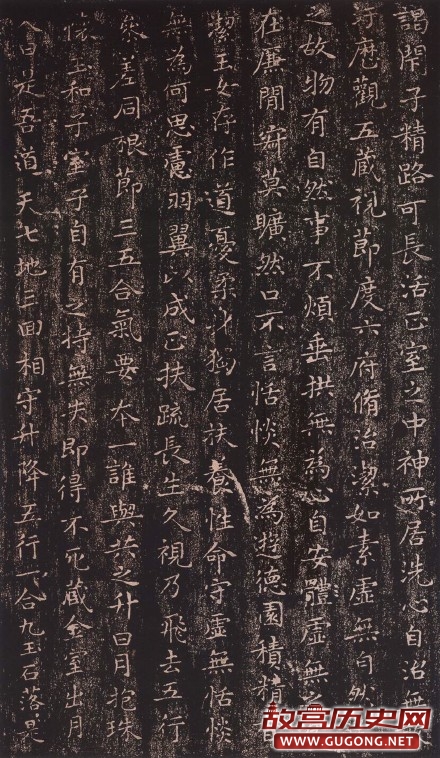 謁閇子精路可長活正室之中神所居洗心自治無
汙歷觀五藏視節度六府脩治潔如素虛無自然
之故物有自然事不煩垂拱無為心自安體虛無之
在廉間寂莫曠然口不言恬惔無為遊德園積精香
潔玉女存作道憂柔身獨居扶養性命守虛無恬惔
無為何思慮羽翼以成正扶疏長生久視乃飛去五行
參差同根節三五合氣要本一誰與共之升日月抱珠
懷玉和子室子自有之持無失即得不死藏金室出月
入日是吾道天七地三回相守升降五行一合九玉石落是
故宫历史网
WWW.GUGONG.NET